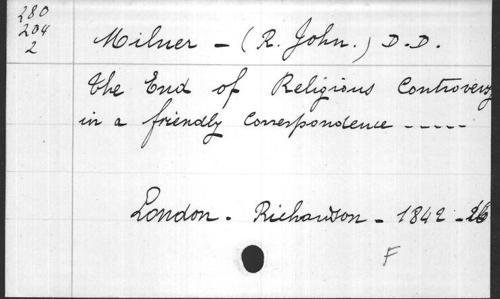 280
204
2
Milner - (R. John.) D.D.
The End of Religious Controversy
in a friendly Correspondence -----
London - Richardson - 1842 -
F